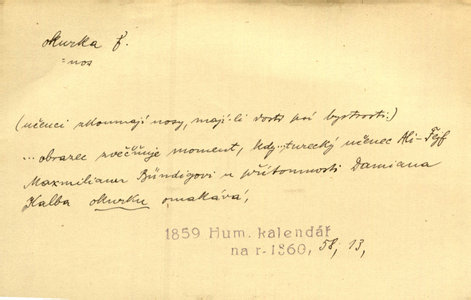 okurka f.
= nos
(učenci zkoumají nosy, mají-li dosti bystrosti:)
... obrazec zvěčňuje moment, kdy turecký učenec Ali-
Maxmilianu Bündigovi u přítomnosti Damiana
Kalba okurku omakává,
1859 Hum. kalendář
na r. 1860, 58, 13,